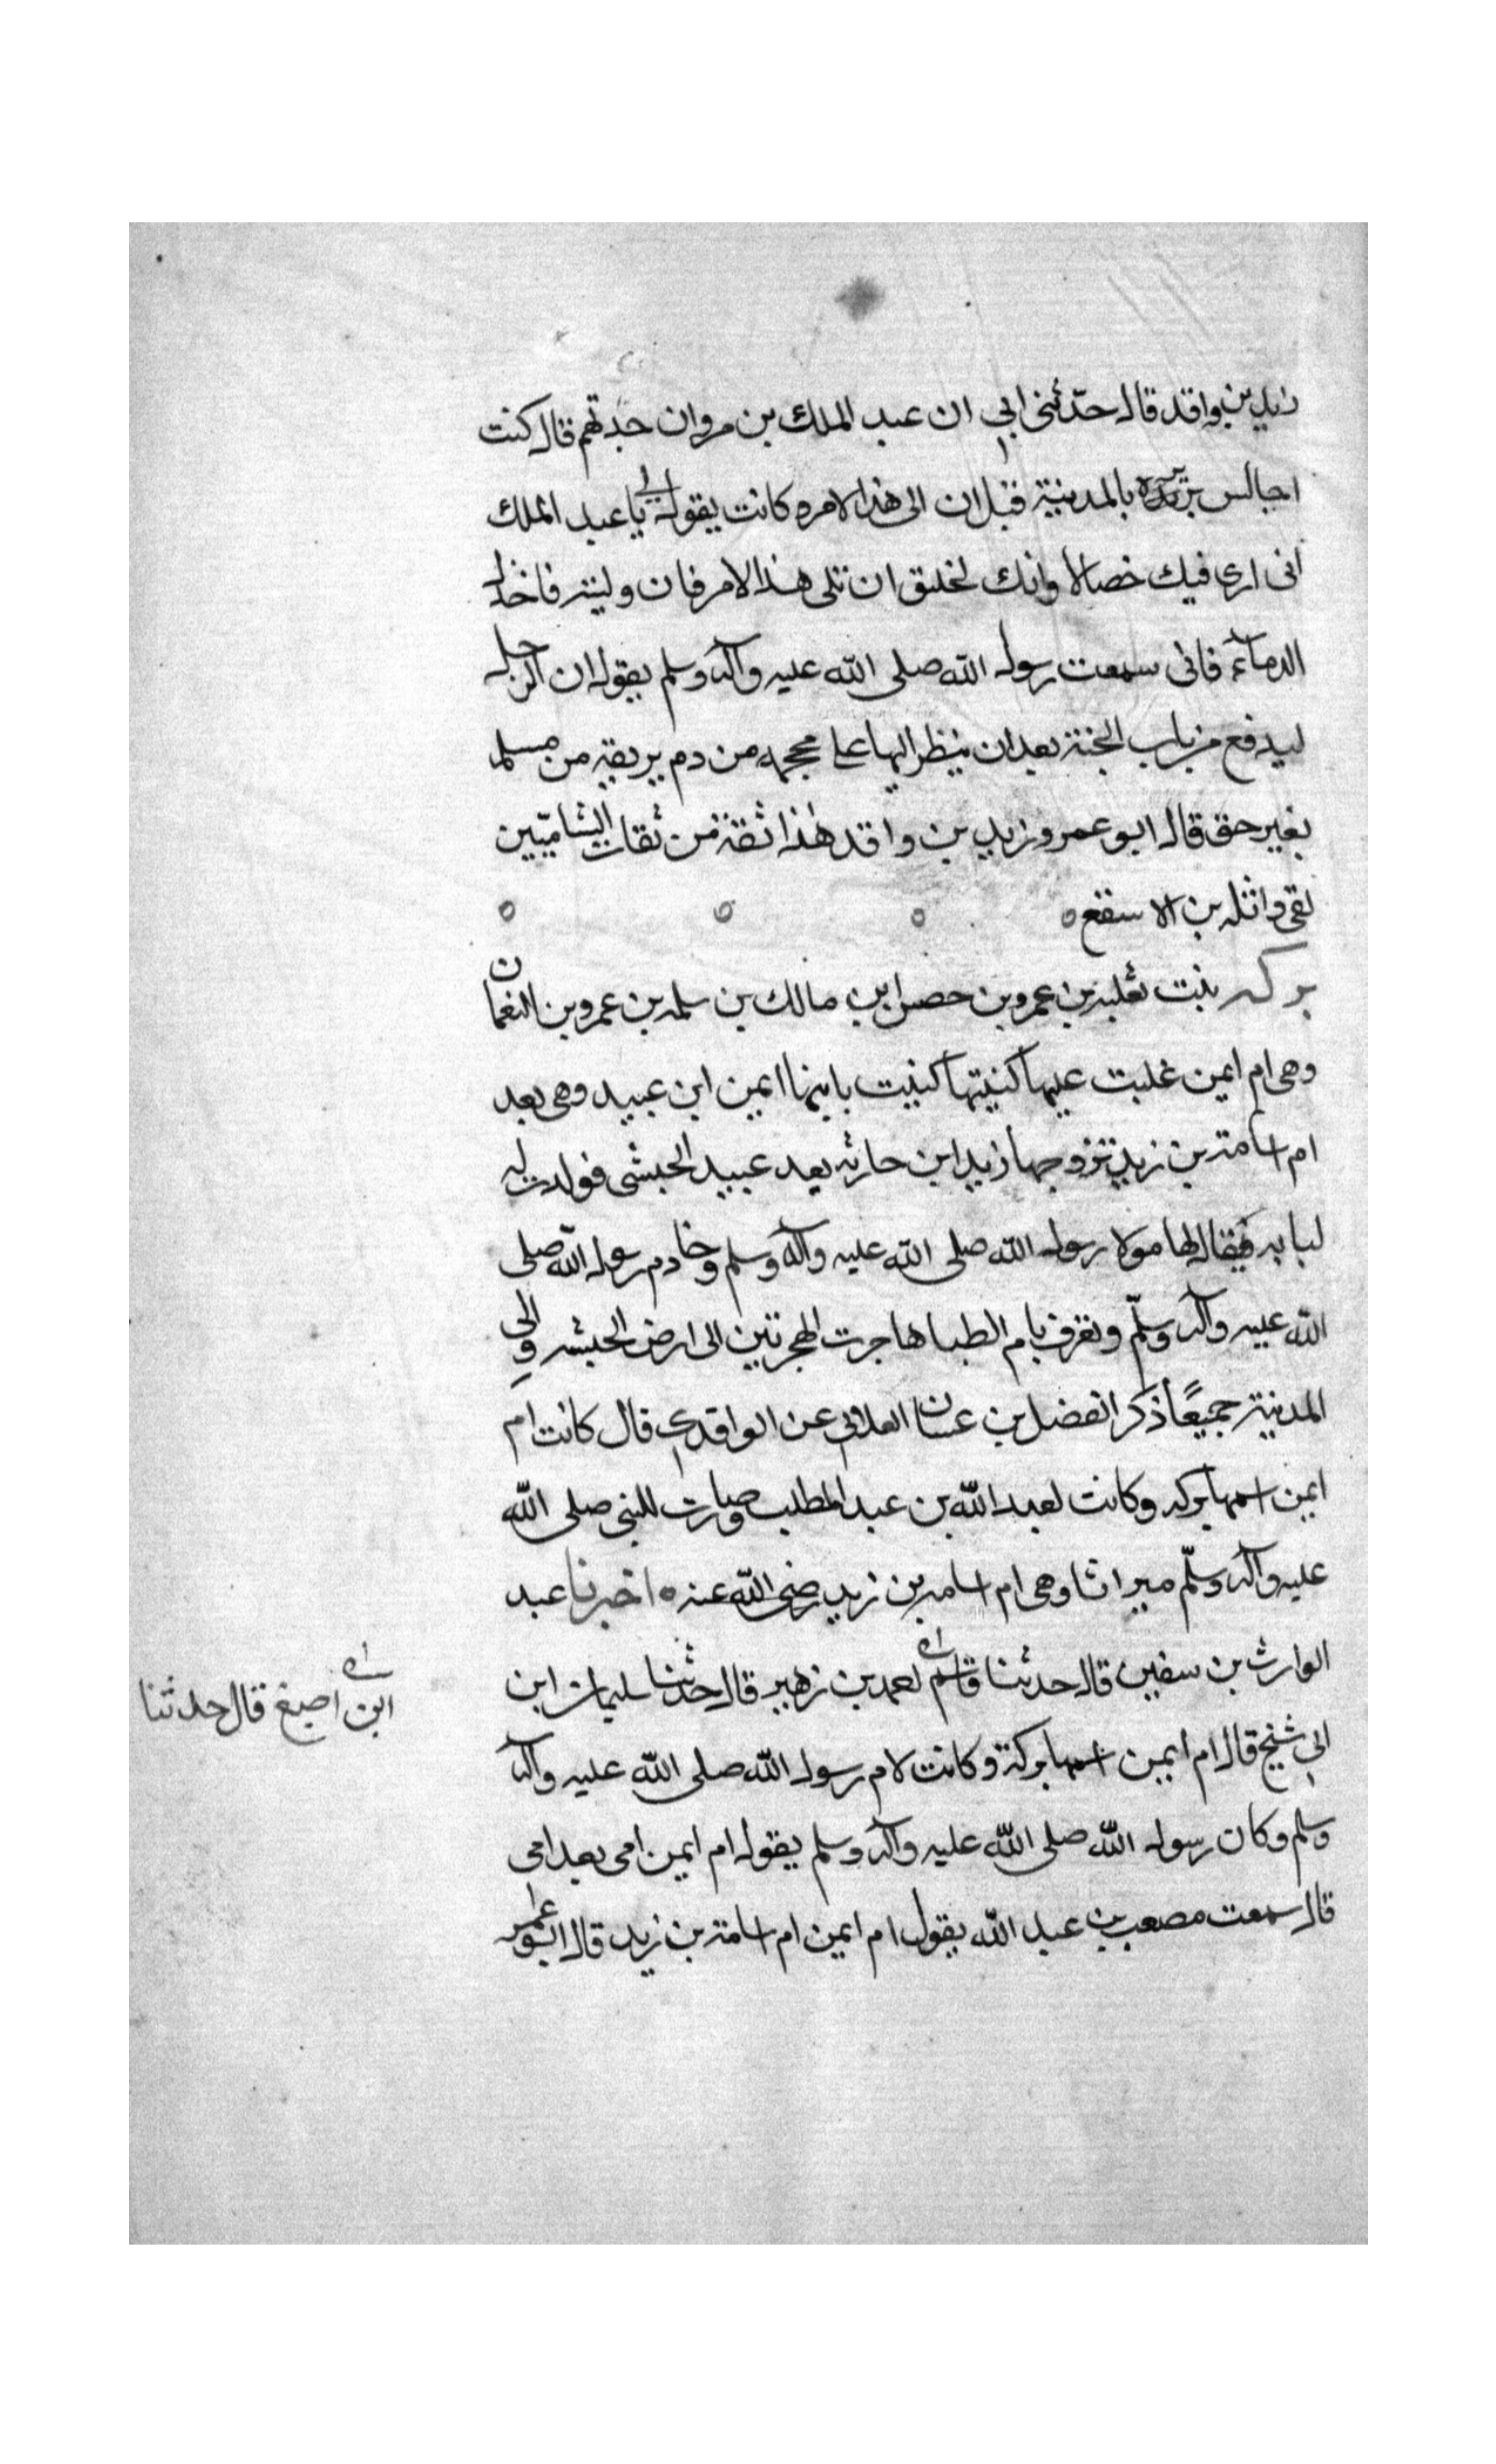 زيد بن واقد قال حدثني ابي ان عبد الملك بن مروان حدثهم قال كنت
اجالس بريرة بالمدينة قبل ان الى هذا الامر وكانت يقول لي يا عبد الملك
انى ارى فيك خصالا وانك لخليق ان تلى هذا الامر فان وليته فاحذر
الدماء فانى سمعت رسول الله صلى الله عليه وآله وسلم يقول ان الرجل
ليدفع من باب الجنة بعد ان ينظر اليها على محجمه من دم يريقه من مسلم
بغير حق قال ابو عمر وزيد بن واقد هذا ثقة من ثقات الشاميين
لقى واثله بن الاسقع
بركه بنت ثعلبه بن عمرو بن حصن ابن مالك بن سلمه بن عمرو بن النعمان
وهى ام ايمن غلبت عليها كنيتها كنيت بابنها ايمن ابن عبيد وهى بعد
ام اسامة بن زيد تزوجها زيد ابن حارثه بعد عبيد الحبشى فولدت له
يقال لها مولاة رسول الله صلى الله عليه وآله وسلم وخادم رسول الله صلى
الله عليه وآله وسلّم وتعرف بام الطبا هاجرت الهجرتين الى ارض الحبشه والى
المدينة جميعًا ذكر الفضل بن غسان العلائي عن الواقدي قال كانت ام
ايمن اسمها بركه وكانت لعبد الله بن عبد المطلب وصارت للنبي صلى الله
عليه وآله وسلّم ميراثا وهى ام اسامه بن زيد رضى الله عنه اخبرنا عبد
الوارث بن سفين قال حدثنا قاسم احمد بن زهير قال حدثنا سليمان ابن
ابن اصبغ قال حدثنا
ابي شيخ قال ام ايمن اسمها بركة وكانت لام رسول الله صلى الله عليه وآله
وسلم وكان رسول الله صلى الله عليه وآله وسلم يقول ام ايمن امى بعد امى
قال سمعت مصعب بن عبد الله يقول ام ايمن ام اسامة بن زيد قال ابو عمر